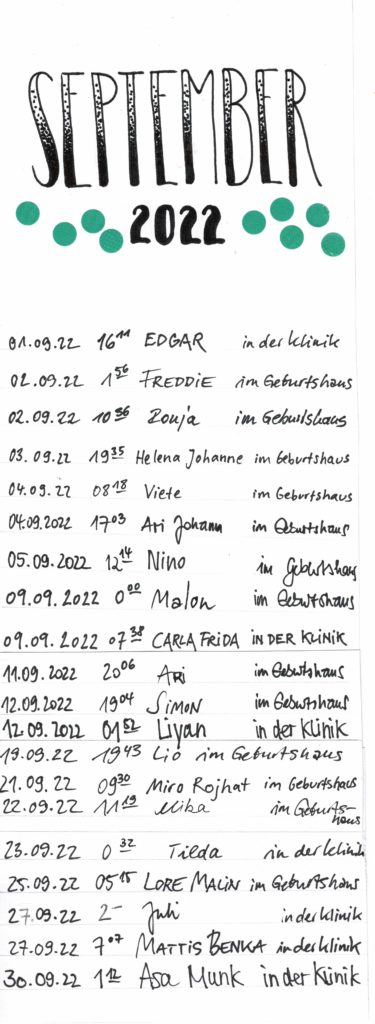 SEPTEMBER
2022
01.09.22 16¹¹ EDGAR in der Klinik
02.09.22 1⁵⁶ FREDDIE im Geburtshaus
02.09.22 10³⁶ Ronja im Geburtshaus
03.09.22 19³⁵ Helena Johanne im Geburtshaus
04.09.22 08¹⁸ Viete im Geburtshaus
04.09.2022 17⁰³ Ari Johann im Geburtshaus
05.09.2022 12¹⁴ Nino im Geburtshaus
09.09.2022 0⁰⁰ Malon im Geburtshaus
09.09.2022 07³⁸ CARLA FRIDA IN DER KLINIK
11.09.2022 20⁰⁶ ARI im Geburtshaus
12.09.2022 19⁰⁴ SIMON im Geburtshaus
12.09.2022 01⁵² Liyan in der Klinik
19.09.22 19⁴³ Lio im Geburtshaus
21.09.22 09³⁰ Miro Rojhat im Geburtshaus
22.09.22 11¹⁹ Mika im Geburts-
haus
23.09.22 0³² Tilda in der Klinik
25.09.22 05¹⁵ LORE MALIN im Geburtshaus
27.09.22 2– Juli in der Klinik
27.09.22 7⁰⁷ MATTIS BENKA in der Klinik
30.09.22 1¹² Asa Munk in der Klinik